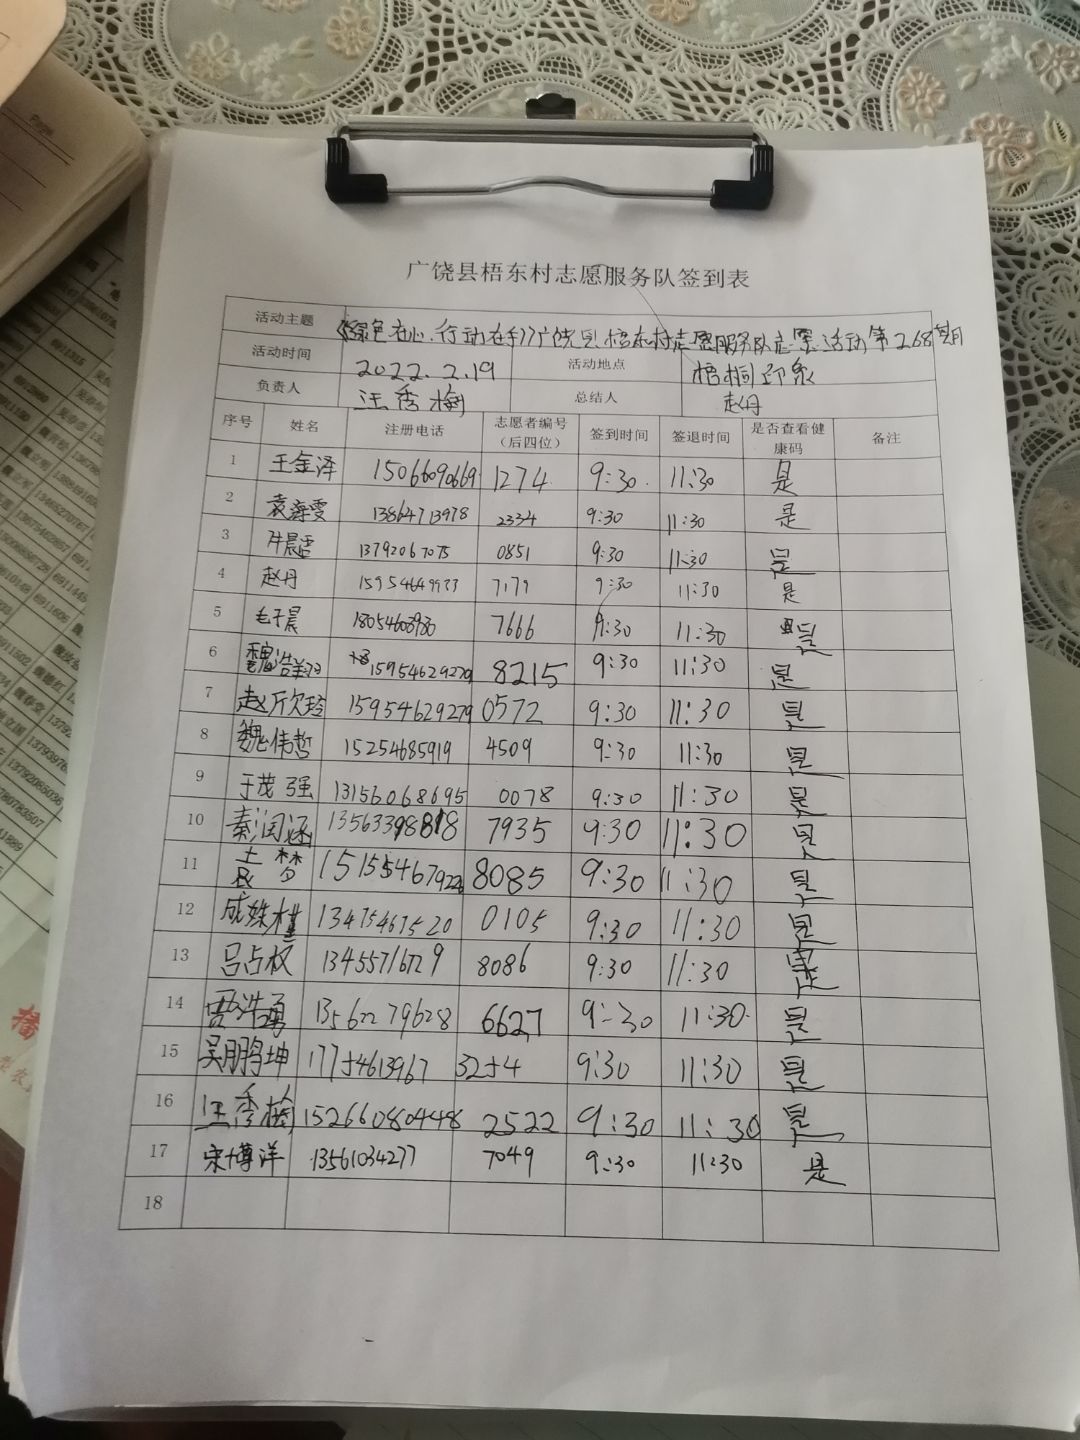 广饶县梧东村志愿服务队签到表
活动主题 《绿色在心、行动在手》广饶县梧东村志愿服务队志愿活动第268期
活动时间 2022.2.19 活动地点 梧桐印象
负责人 汪秀梅 总结人 赵丹
序号 姓名 注册电话 志愿者编号（后四位） 签到时间 签退时间 是否查看健康码 备注
1 王金泽 15066090669 1274 9:30 11:30 是
2 袁海雯 13864713978 2334 9:30 11:30 是
3 13792067075 0851 9:30 11:30 是
4 赵丹 15954649933 7179 9:30 11:30 是
5 毛子晨 7666 9:30 11:30 是
6 魏浩羽 15954629279 8215 9:30 11:30 是
7 赵斤欠玲 15954629279 0572 9:30 11:30 是
8 魏伟哲 15254685919 4509 9:30 11:30 是
9 于茂强 13156068695 0078 9:30 11:30 是
10 秦润涵 7935 9:30 11:30 是
11 袁梦 8085 9:30 11:30 是
12 成姝槿 13475467520 0105 9:30 11:30 是
13 吕占权 13455716729 8086 9:30 11:30 是
14 贾浩勇 13562279628 6627 9:30 11:30 是
15 吴鹏坤 17754613967 3254 9:30 11:30 是
16 汪秀梅 15266080448 2522 9:30 11:30 是
17 宋博洋 13561034277 7049 9:30 11:30 是
18
Page
播